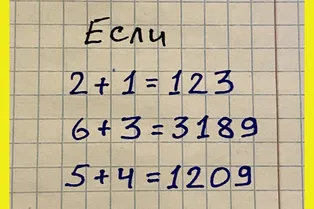 Если
2+1=123
6+3=3189
5+4=1209